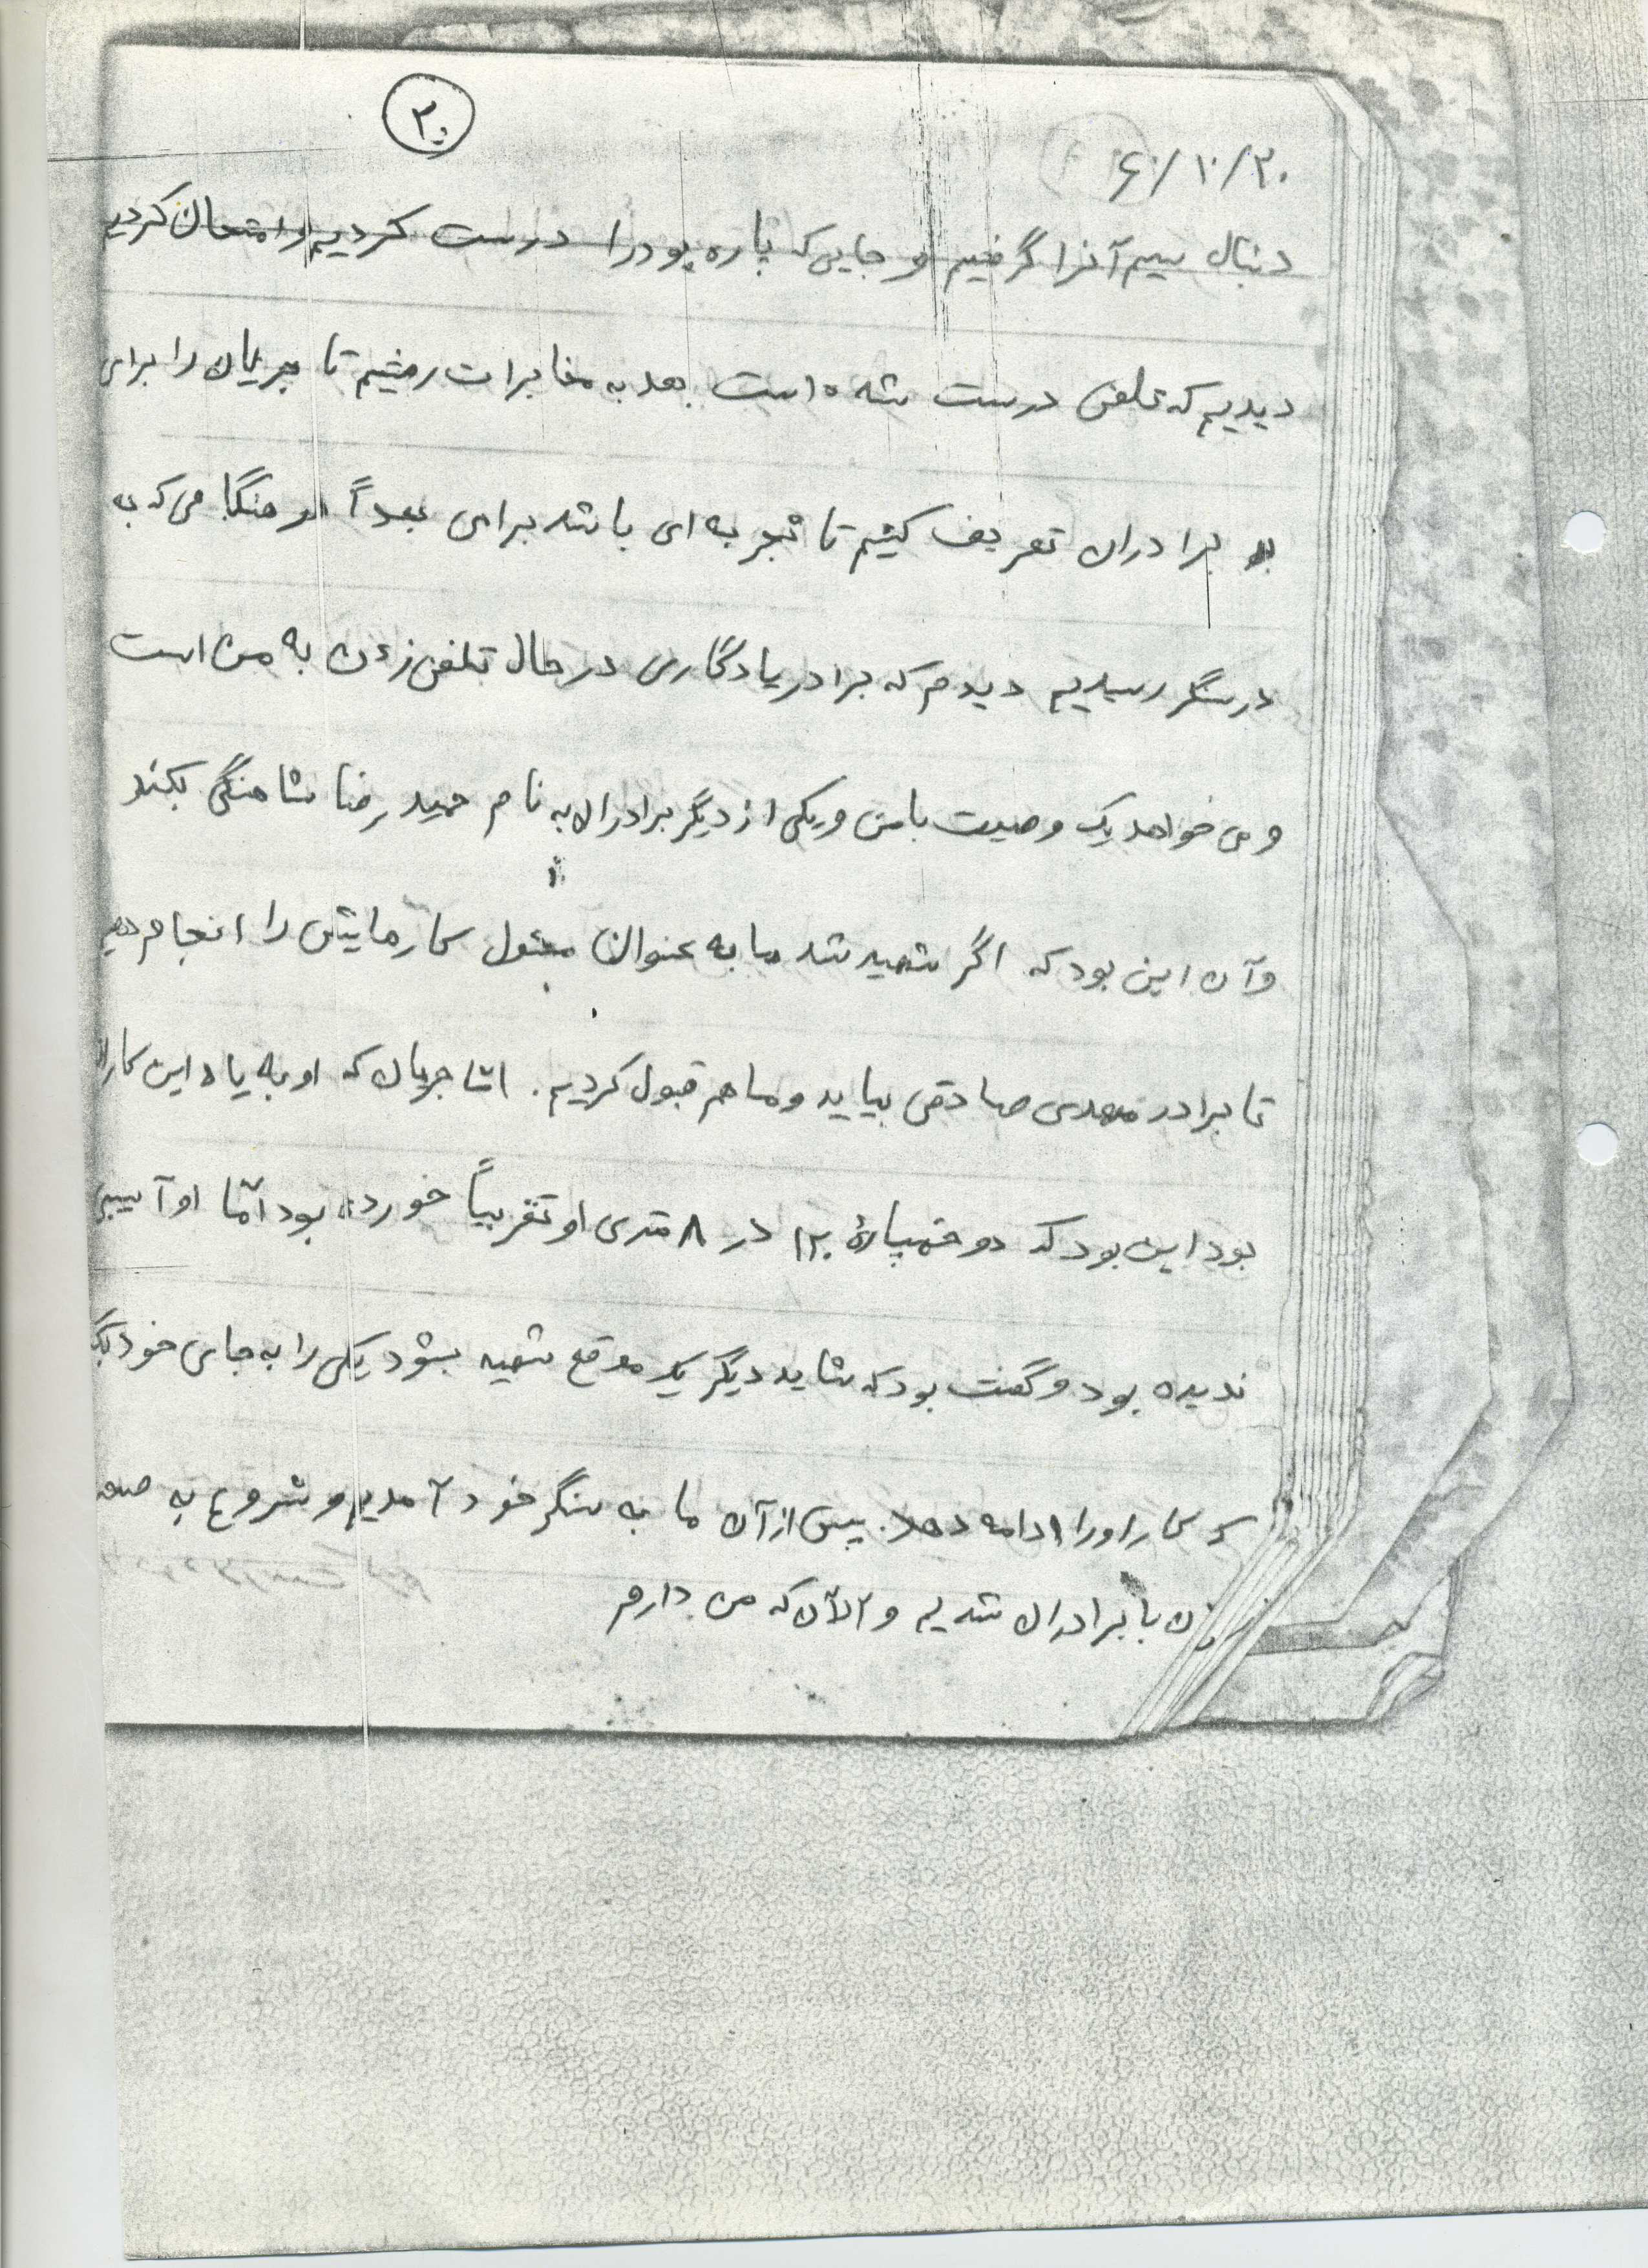 ۲۰
۶۰/۱۰/۲۰
دنبال سیم آنرا گرفتیم و جایی که پاره بود را درست کردیم و امتحان کردیم
دیدیم که تلفن درست شده است بعد به مخابرات رفتیم تا جریان را برای
برادران تعریف کنیم تا تجربه ای باشد برای بعداً و هنگامی که به
در سنگر رسیدیم دیدم که برادر یادگاری در حال تلفن زدن به من است
و می خواهد یک وصیت با من و یکی از دیگر برادران به نام حمید رضا شاهنگی بکند
و آن این بود که اگر شهید شد ما به عنوان مسئول کارهایش را انجام دهیم
تا برادر مهدی صادقی بیاید و ما هم قبول کردیم. امّا جریان که او به یاد این کار
بود این بود که دو خمپارهٔ ۱۲۰ در ۸ متری او تقریباً خورده بود امّا او آسیبی
ندیده بود و گفت بود که شاید دیگر یک موقع شهید بشود یکی را به جای خود
کار او را ادامه دهد. پس از آن ما به سنگر خود آمدیم و شروع به
با برادران شدیم و الآن که من دارم